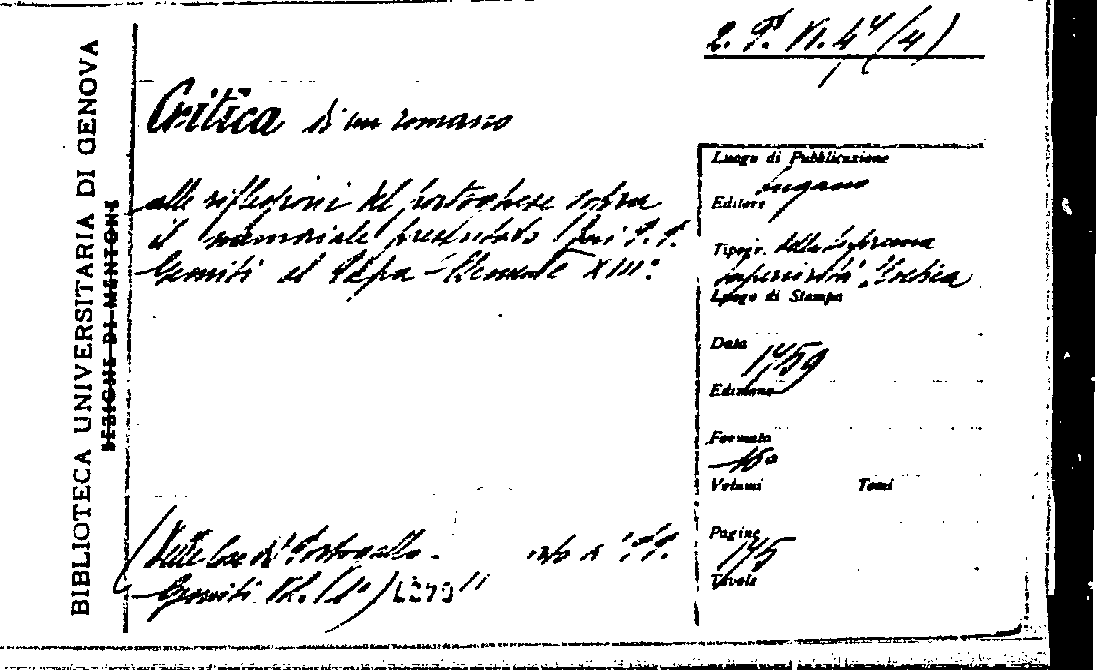 BIBLIOTECA UNIVERSITARIA DI GENOVA
SEZIONE DI MENTONE
2. P. VI. 4 (4)
Critica di un romano
alle riflessioni del portoghese sopra
il memoriale presentato dai P.P.
Gesuiti al Papa Clemente XIII°
(Delle Cose di Portogallo - P.P.
Gesuiti Vl. (1°) L270
Luogo di Pubblicazione
Lugano
Editore
Tipogr. della suprema
superiorità Svizzera
Luogo di Stampa
Data
1759
Edizione
Formato
16°
Volumi Tomi
Pagine
175
Tavole